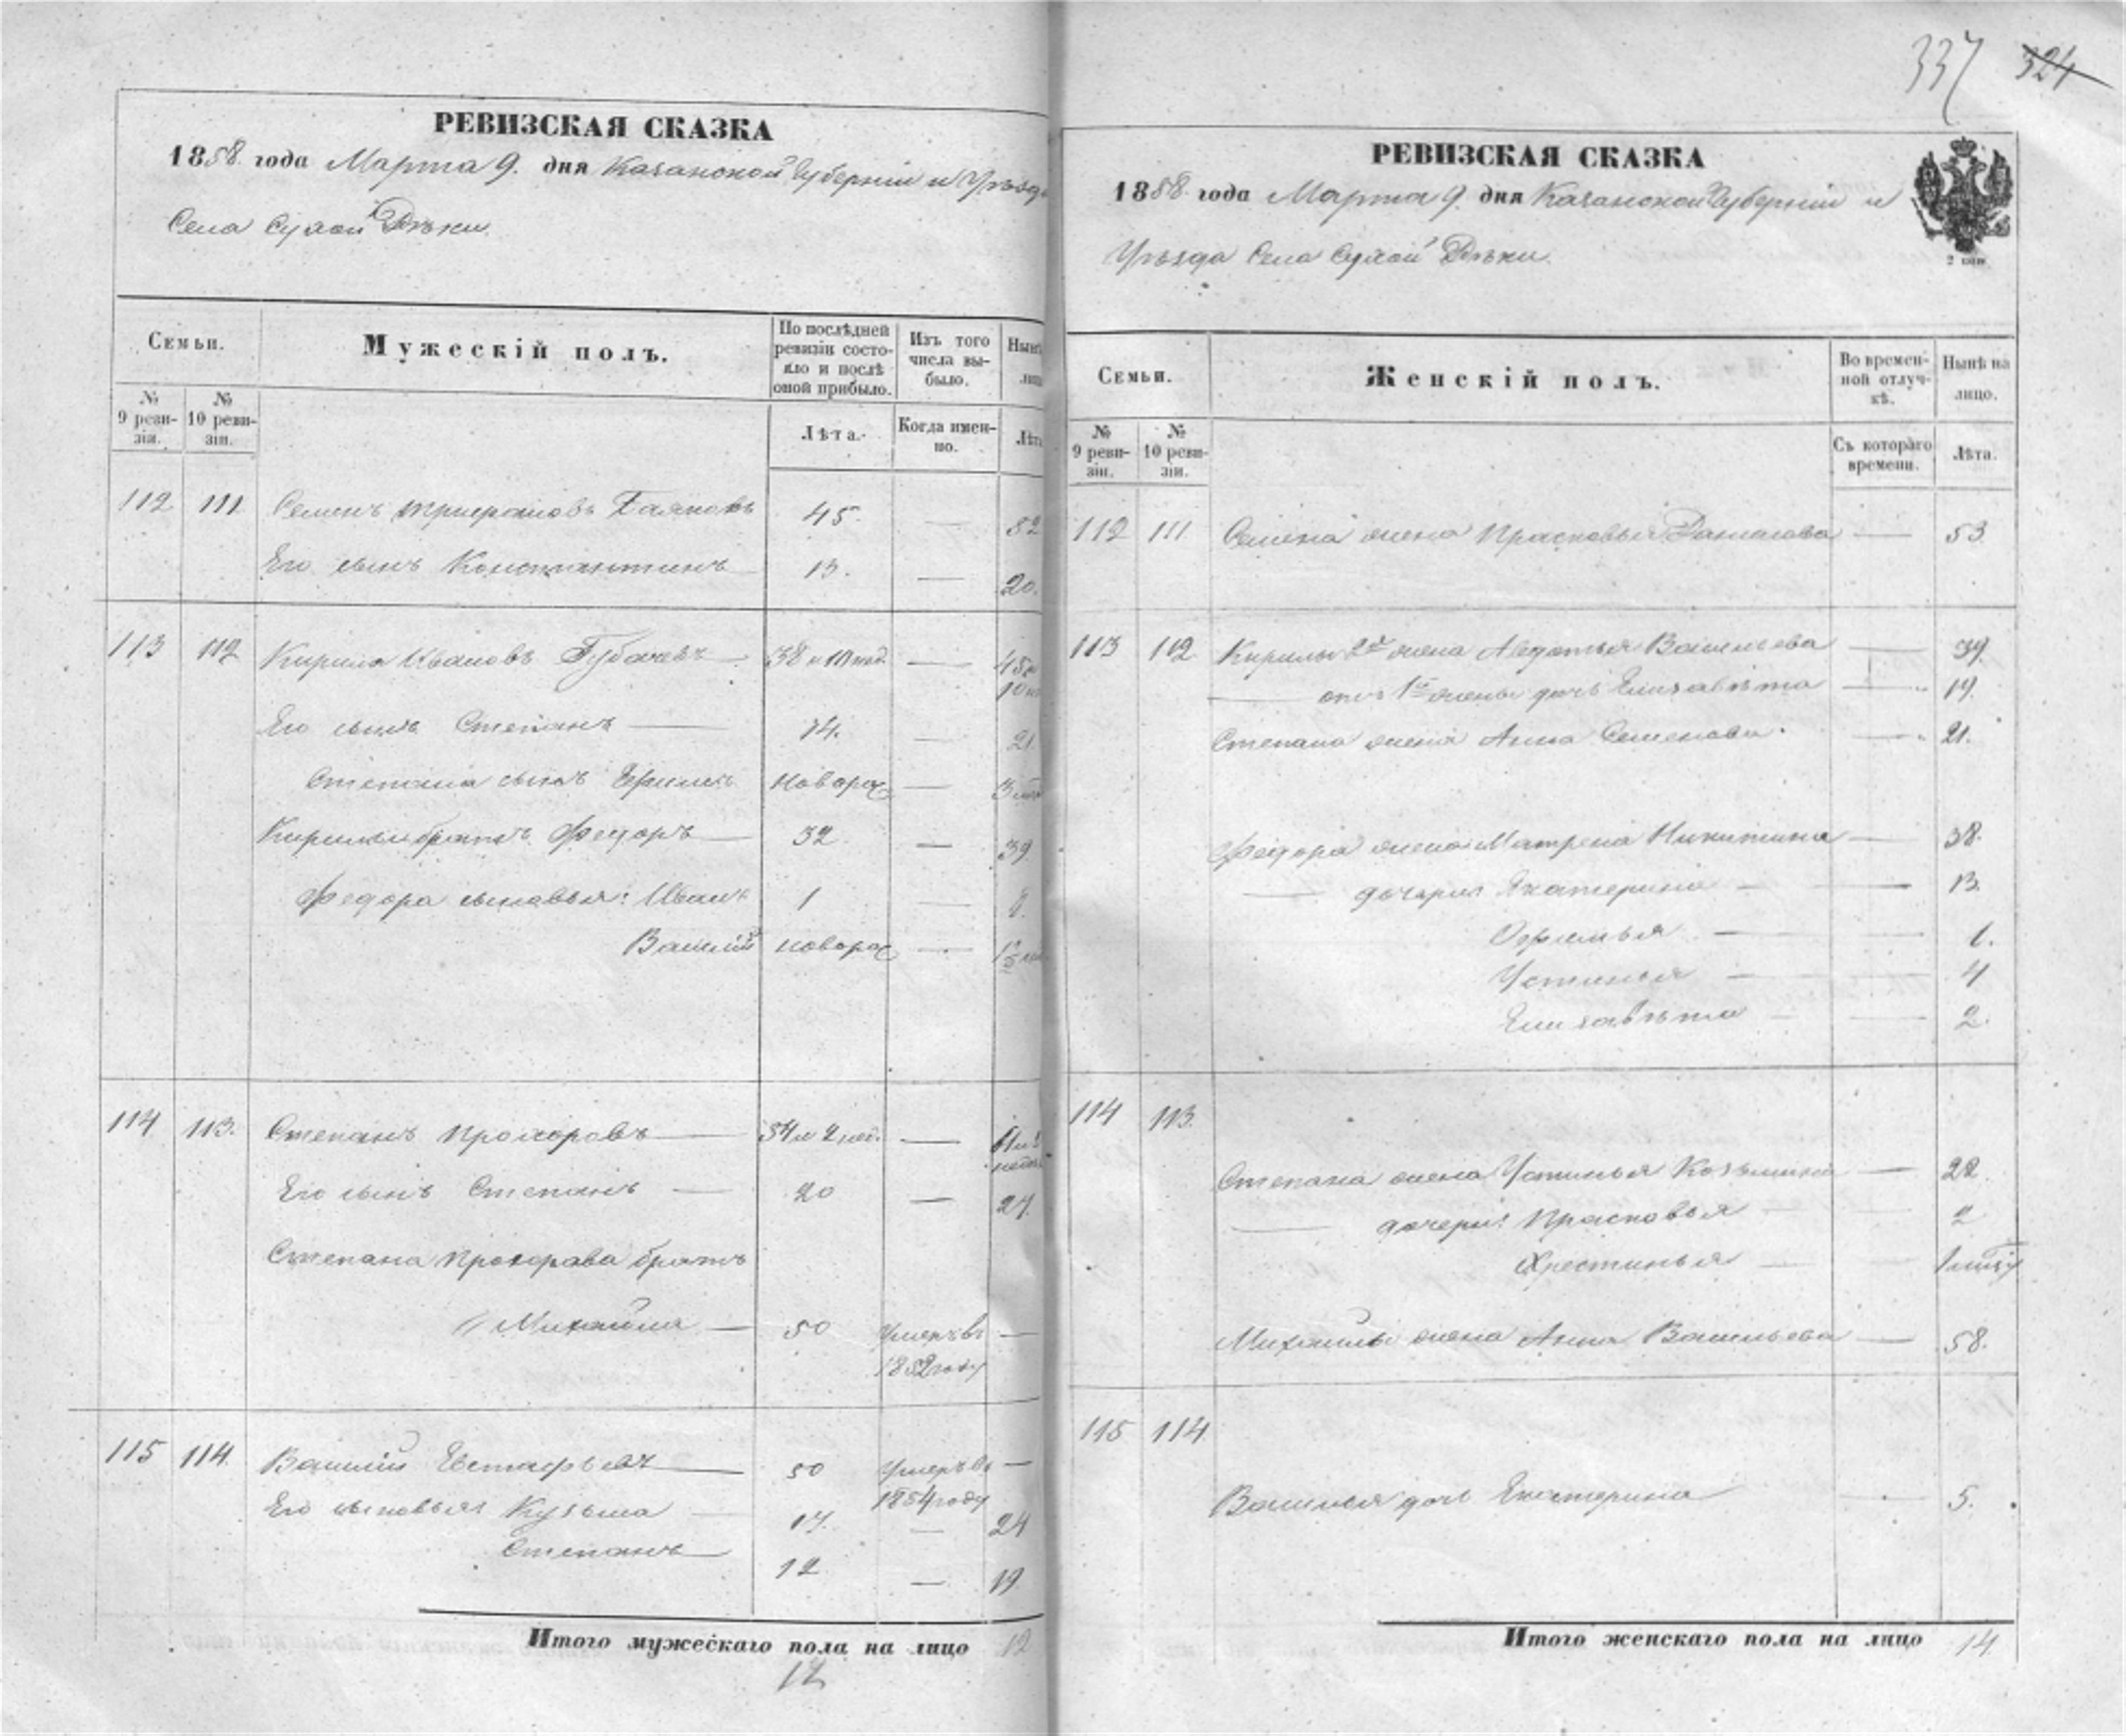 337 324
РЕВИЗСКАЯ СКАЗКА
1858 года Марта 9. дня Казанской Губернии и Уѣзда
Села Сухой Рѣки.
Семьи.
Мужескій полъ.
По послѣдней ревизіи состояло и послѣ оной прибыло.
Изъ того числа выбыло.
№ 9 ревизіи.
№ 10 ревизіи.
Лѣта.
Когда именно.
112 111 Семенъ 45. — 52
Его сынъ Константинъ 13. — 20.
113 112 Кирила Ивановъ Губачевъ 38 и 10 нед. — 45
Его сынъ Степанъ — 14. — 21.
Степана сынъ новорож —
Кирилы братъ Федоръ — 32 — 39
Федора сыновья: Иванъ 1 — 8.
Василій новорож —
114 113. Степанъ Прохоровъ — 54 и 2 нед. —
Его сынъ Степанъ — 20 — 27.
Степана Прохорова братъ
Михайла — 50 Умеръ въ —
1852 году
115 114. Василій Евстафьевъ — 50 Умеръ въ —
1854 году
Его сыновья: Кузьма — 17. — 24
Степанъ — 12 — 19
Итого мужескаго пола на лицо 12
12
РЕВИЗСКАЯ СКАЗКА
1858 года Марта 9. дня Казанской Губерніи и
Уѣзда Села Сухой Рѣки.
Семьи.
Женскій полъ.
Во временной отлучкѣ.
Нынѣ на лицо.
№ 9 ревизіи.
№ 10 ревизіи.
Съ котораго времени.
Лѣта.
112 111 Семена жена Прасковья — 53
113 112 Кирилы 2я жена Авдотья Васильева — 39.
отъ 1й жены дочь Елизавѣта — 19.
Степана жена Анна Семенова. — 21.
Федора жена Матрена Никитина — 38.
— дочери: Екатерина — — 13.
Офимья — —
Устинья — — 4
Елизавѣта — — 2.
114 113.
Степана жена Устинья Козьмина — 22.
— дочери: Прасковья — — 2
Хрестинья —
Михайлы жена Анна Васильева — 58.
115 114
Василья дочь Екатерина — 5.
Итого женскаго пола на лицо 14.